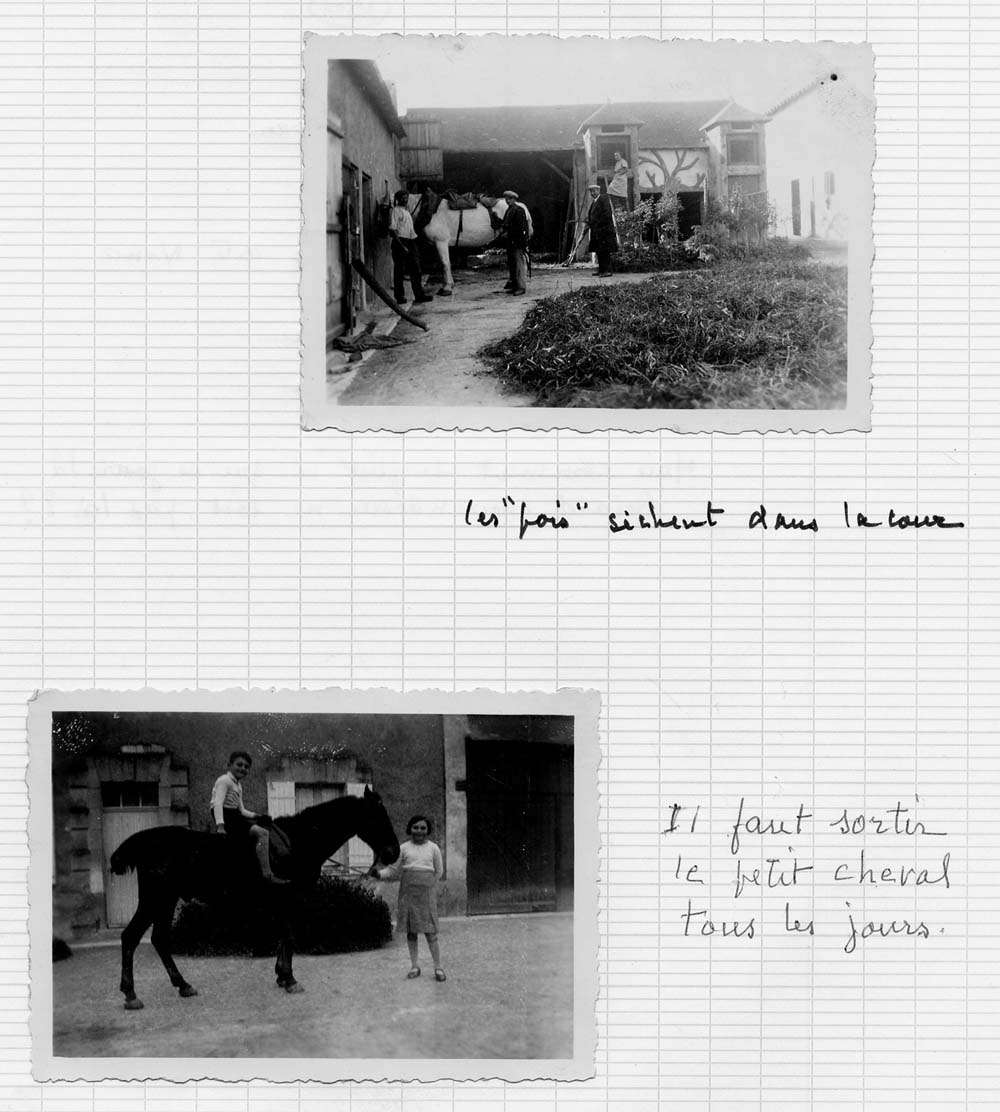 les "pois" sèchent dans la cour
Il faut sortir
le petit cheval
tous les jours.